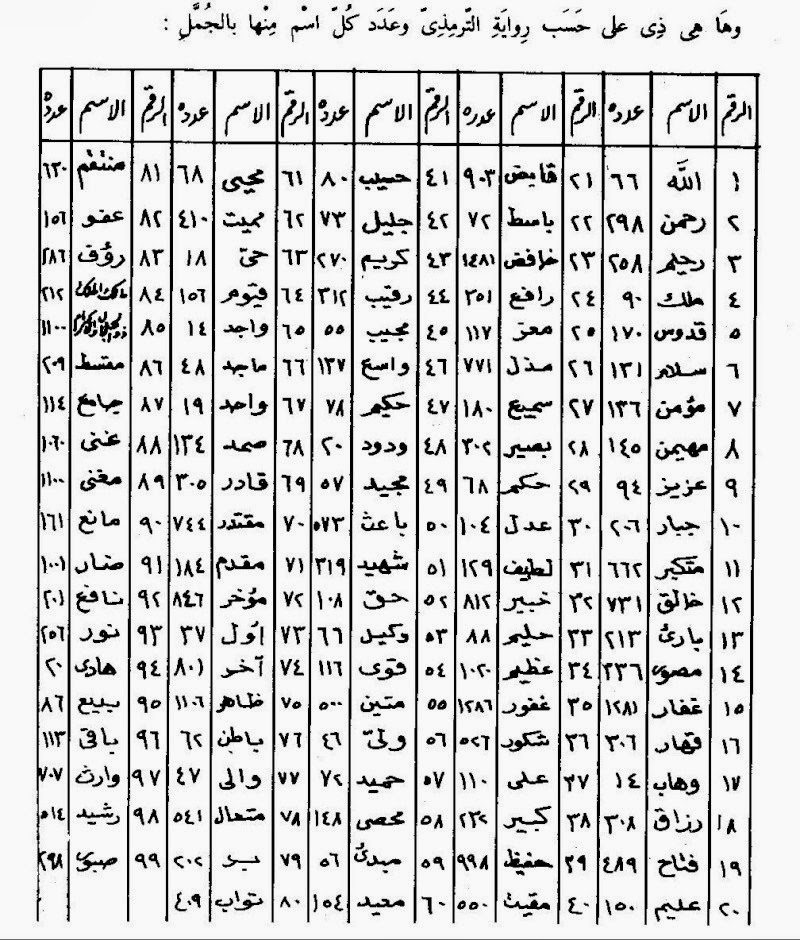 وهَا هِى ذِى على حَسَب رِوايَةِ التّرمِذِىّ وعَدَد كُلّ اسْم مِنْها بالجُمَّلِ :
الرقم الاسم عدده الرقم الاسم عدده الرقم الاسم عدده الرقم الاسم عدده الرقم الاسم عدده
١ الله ٦٦ ٢١ قابض ٩٠٣ ٤١ حسيب ٨٠ ٦١ محيى ٦٨ ٨١ منتقم ٦٣٠
٢ رحمن ٢٩٨ ٢٢ باسط ٧٢ ٤٢ جليل ٧٣ ٦٢ مميت ٤١٠ ٨٢ عفو ١٥٦
٣ رحيم ٢٥٨ ٢٣ خافض ١٤٨١ ٤٣ كريم ٢٧٠ ٦٣ حىّ ١٨ ٨٣ رؤف ٢٨٦
٤ ملك ٩٠ ٢٤ رافع ٣٥١ ٤٤ رقيب ٣١٢ ٦٤ قيوم ١٥٦ ٨٤ مالك الملك ٢١٢
٥ قدوس ١٧٠ ٢٥ معز ١١٧ ٤٥ مجيب ٥٥ ٦٥ واجد ١٤ ٨٥ ذو الجلال والاكرام ١١٠٠
٦ سلام ١٣١ ٢٦ مذل ٧٧١ ٤٦ واسع ١٣٧ ٦٦ ماجد ٤٨ ٨٦ مقسط ٢٠٩
٧ مؤمن ١٣٦ ٢٧ سميع ١٨٠ ٤٧ حكيم ٧٨ ٦٧ واحد ١٩ ٨٧ جامع ١١٤
٨ مهيمن ١٤٥ ٢٨ بصير ٣٠٢ ٤٨ ودود ٢٠ ٦٨ صمد ١٣٤ ٨٨ غنى ١٠٦٠
٩ عزيز ٩٤ ٢٩ حكم ٦٨ ٤٩ مجيد ٥٧ ٦٩ قادر ٣٠٥ ٨٩ مغنى ١١٠٠
١٠ جبار ٢٠٦ ٣٠ عدل ١٠٤ ٥٠ باعث ٥٧٣ ٧٠ مقتدر ٧٤٤ ٩٠ مانع ١٦١
١١ متكبر ٦٦٢ ٣١ لطيف ١٢٩ ٥١ شهيد ٣١٩ ٧١ مقدم ١٨٤ ٩١ ضار ١٠٠١
١٢ خالق ٧٣١ ٣٢ خبير ٨١٢ ٥٢ حق ١٠٨ ٧٢ مؤخر ٨٤٦ ٩٢ نافع ٢٠١
١٣ بارئ ٢١٣ ٣٣ حليم ٨٨ ٥٣ وكيل ٦٦ ٧٣ اول ٣٧ ٩٣ نور ٢٥٦
١٤ مصور ٣٣٦ ٣٤ عظيم ١٠٢٠ ٥٤ قوى ١١٦ ٧٤ آخر ٨٠١ ٩٤ هادى ٢٠
١٥ غفار ١٢٨١ ٣٥ غفور ١٢٨٦ ٥٥ متين ٥٠٠ ٧٥ ظاهر ١١٠٦ ٩٥ بديع ٨٦
١٦ قهار ٣٠٦ ٣٦ شكور ٥٢٦ ٥٦ ولىّ ٤٦ ٧٦ باطن ٦٢ ٩٦ باقى ١١٣
١٧ وهاب ١٤ ٣٧ على ١١٠ ٥٧ حميد ٧٢ ٧٧ والى ٤٧ ٩٧ وارث ٧٠٧
١٨ رزاق ٣٠٨ ٣٨ كبير ٢٣٢ ٥٨ محصى ١٤٨ ٧٨ متعال ٥٤١ ٩٨ رشيد ٥١٤
١٩ فتاح ٤٨٩ ٣٩ حفيظ ٩٩٨ ٥٩ مبدئ ٥٦ ٧٩ بر ٢٠٢ ٩٩ صبور ٢٩٨
٢٠ عليم ١٥٠ ٤٠ مقيت ٥٥٠ ٦٠ معيد ١٥٤ ٨٠ تواب ٤٠٩